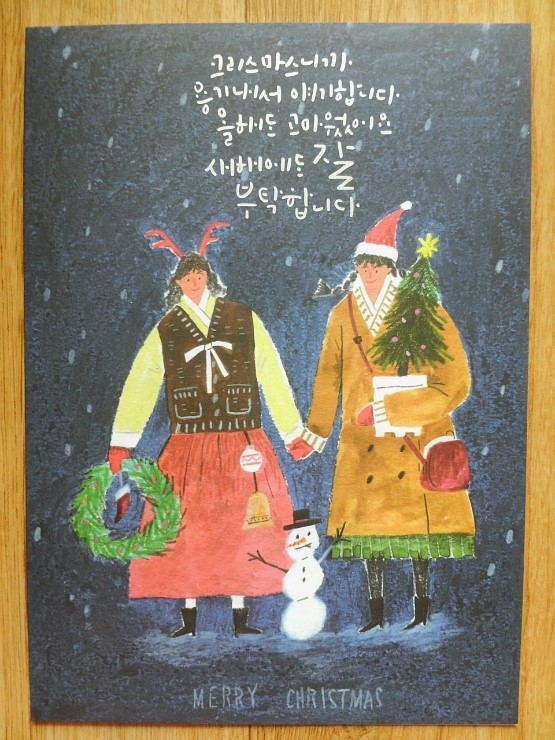 크리스마스니까
용기내서 얘기합니다
올해도 고마웠어요
새해에도 잘
부탁합니다
MERRY CHRISTMAS